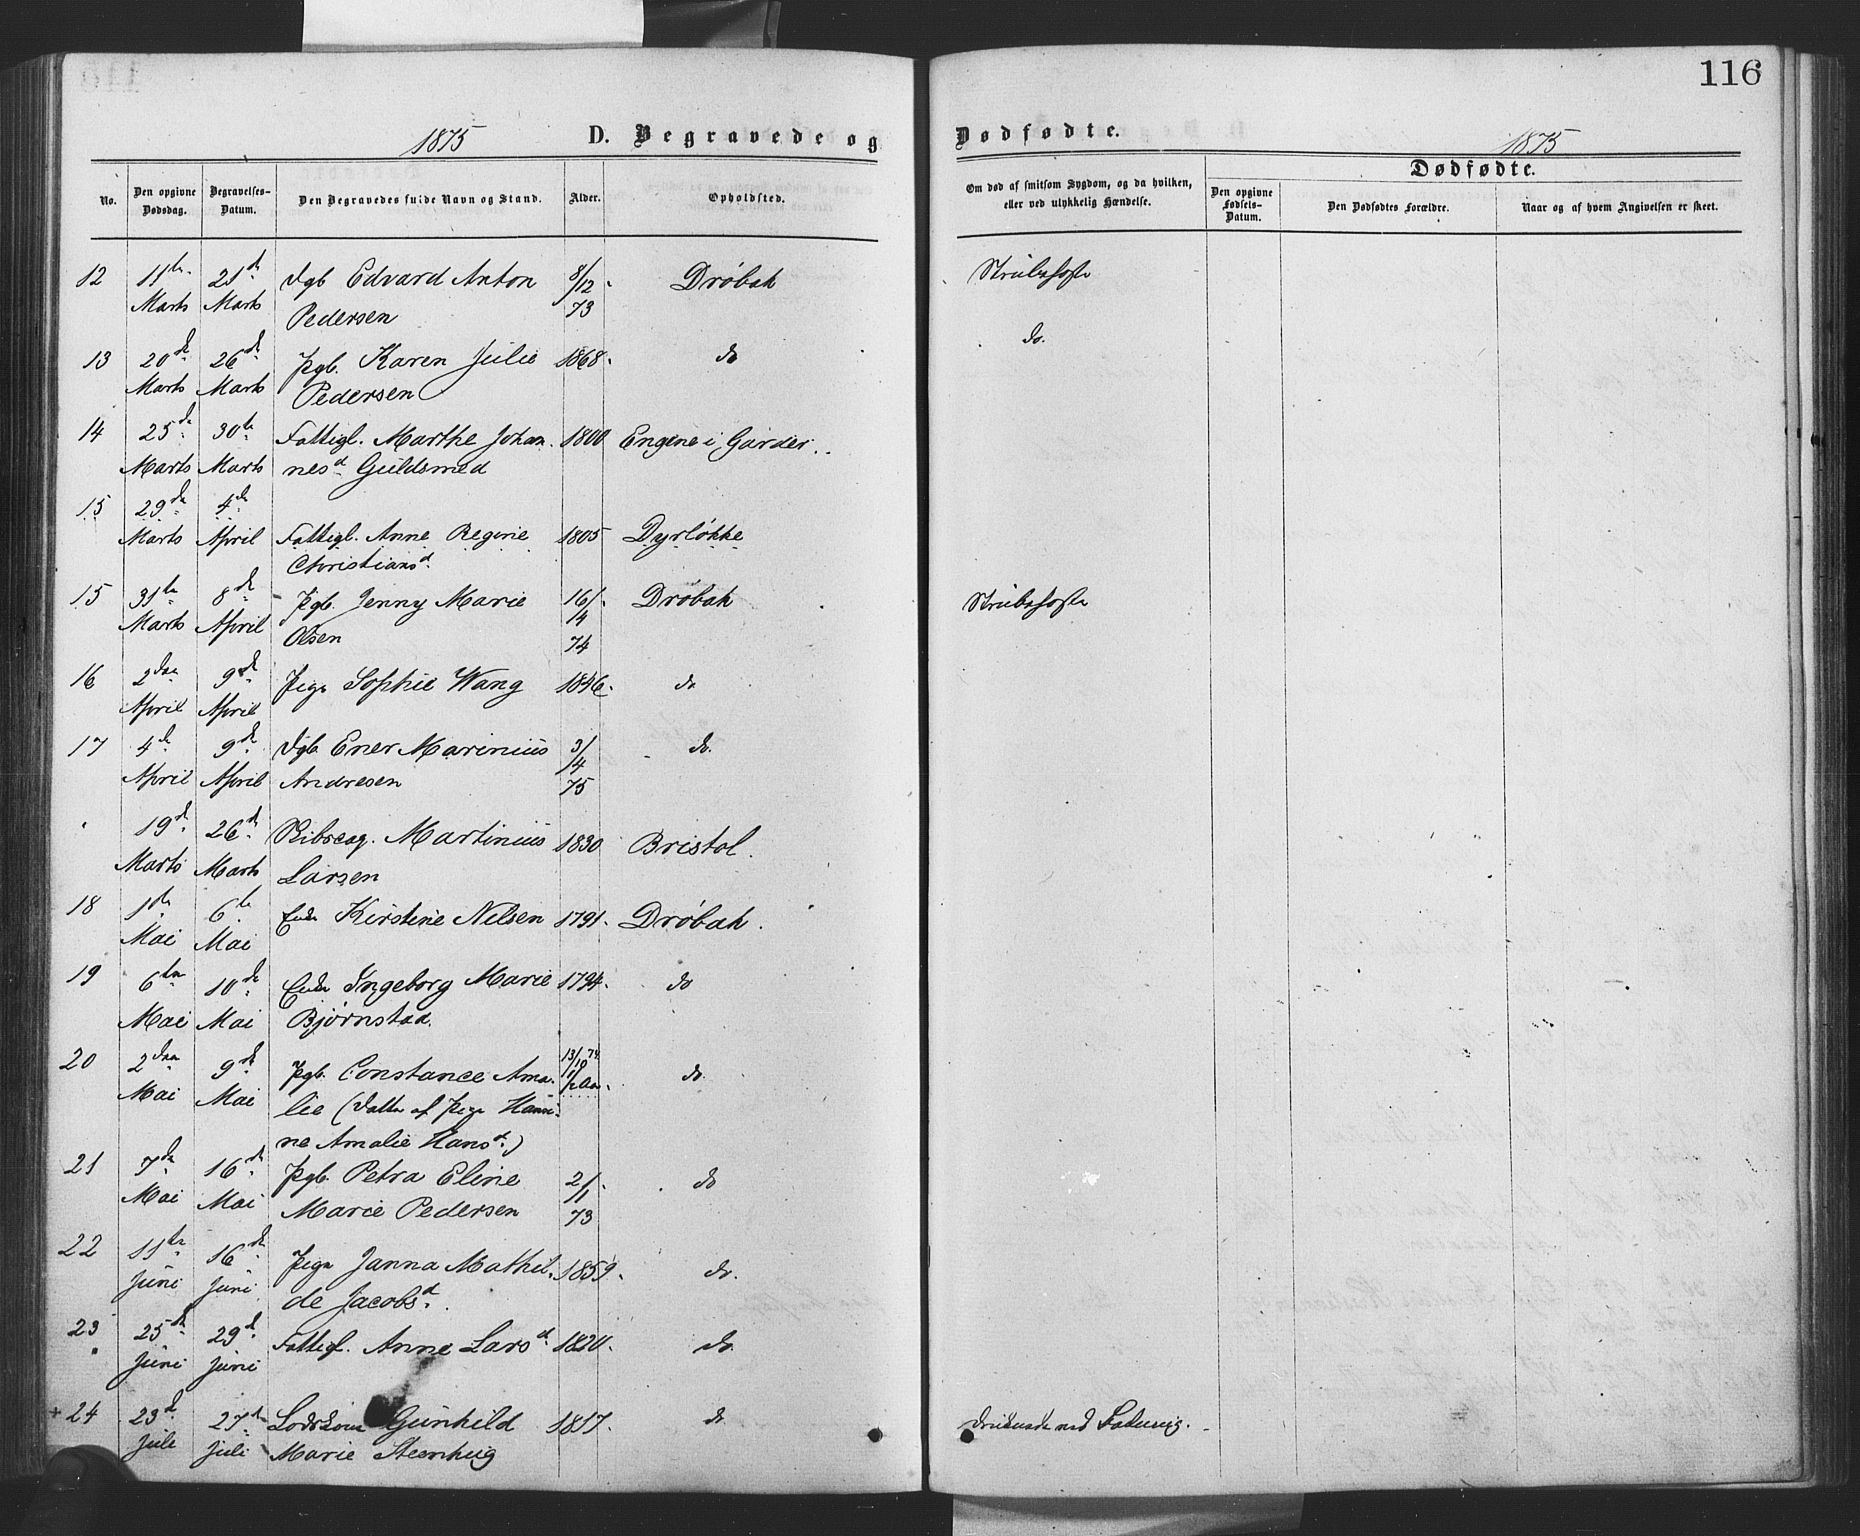 116
1875 D. Begravede og Dødfødte. 1875
No. Den opgivne Dødsdag. Begravelses-Datum. Den Begravedes fulde Navn og Stand. Alder. Opholdsted. Om død af smitsom Sygdom, og da hvilken, eller ved ulykkelig Hændelse. Dødfødte.
Den opgivne Fødsels-Datum. Den Dødfødtes Forældre. Naar og af hvem Angivelsen er skeet.
12 11te 21de Dgb Edvard Anton 8/12 Drøbak Strubehoste
Marts Marts Pedersen 73
13 20de 26de Pgb. Karen Julie 1868. do do.
Marts Marts Pedersen
14 25de 30te Fattigl. Marthe Johan- 1800 Engene i Garder.
Marts Marts nesd Guldsmed
15 29de 4de
Marts April Fattigl. Anne Regine 1805 Dyrløkke
Christiansd.
15 31te 8de Pgb. Jenny Marie 16/4 Drøbak Strubehoste
Marts April Olsen 74
16 2den 9de Pige Sophie Wang 1846. do
April April
17 4de 9de Dgb Ener Marinius 3/4 do.
April April Andresen 75
19de 26de Martinius 1830 Bristol.
Marts Marts Larsen
18 1ste 6te Enke Kirstine Nilsen 1791. Drøbak.
Mai Mai
19 6te 10de Enke Ingeborg Marie 1794. do
Mai Mai Bjørnstad.
20 2den 9de Pgb. Constance Ama- 13/10 74 do
Mai Mai lie (Datter af Pige Hansi-
ne Amalie Hansd.)
21 7de 16de Pgb. Petra Eline 2/1 do
Mai Mai Marie Pedersen 73
22 11te 16de Pige Janna Mathil- 1859. do.
Juni Juni de Jacobsd.
23 25de 29de Fattigl. Anne Larsd 1820. do
Juni Juni
+24 23de 27de Gunhild 1817. do druknede ved
Juli Juli Marie Steenhug